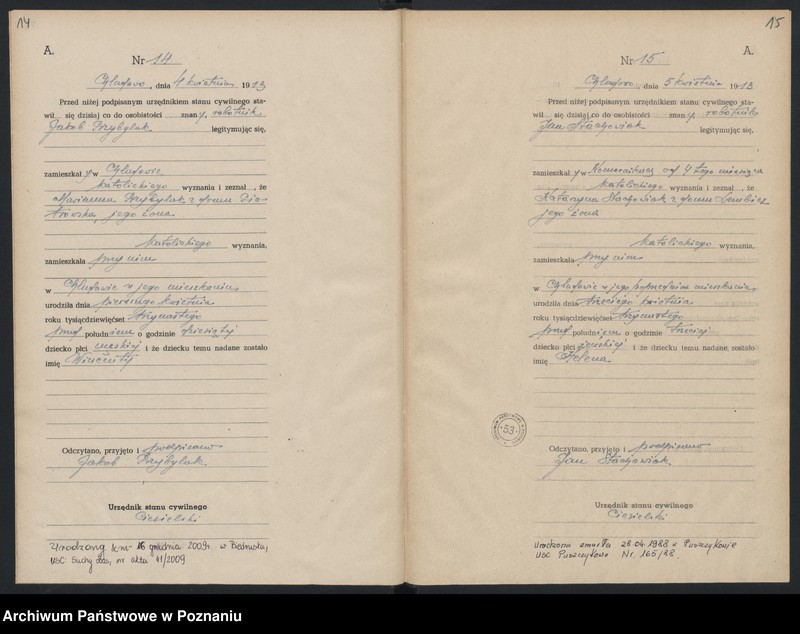 14
A.
Nr 14
Chludowo, dnia 4 kwietnia 1913
Przed niżej podpisanym urzędnikiem stanu cywilnego sta-
wił się dzisiaj co do osobistości znany, robotnik
Jakob Przybylak legitymując się,
zamieszkały w Chludowie
katolickiego wyznania i zeznał, że
Marianna Przybylak z domu Pio-
trowska, jego żona
katolickiego wyznania,
zamieszkała przy nim
w Chludowie w jego mieszkaniu
urodziła dnia pierwszego kwietnia
roku tysiącdziewięćset trzynastego
przed południem o godzinie dziesiątej
dziecko płci męskiej i że dziecku temu nadane zostało
imię Wincenty
Odczytano, przyjęto i podpisano
Jakob Przybylak
Urzędnik stanu cywilnego
Ciesielski
grudnia 2009r. w
USC Suchy Las, nr aktu 41/2009
15
A.
Nr 15
Chludowo, dnia 5 kwietnia 1913
Przed niżej podpisanym urzędnikiem stanu cywilnego sta-
wił się dzisiaj co do osobistości znany, robotnik
Jan Stachowiak legitymując się,
zamieszkały w od 4 tego miesiąca
katolickiego wyznania i zeznał, że
Katarzyna Stachowiak z domu
jego żona
katolickiego wyznania,
zamieszkała przy nim
w Chludowie w jego poprzednim mieszkaniu
urodziła dnia trzeciego kwietnia
roku tysiącdziewięćset trzynastego
przed południem o godzinie trzeciej
dziecko płci żeńskiej i że dziecku temu nadane zostało
imię Helena
53
Odczytano, przyjęto i podpisano
Jan Stachowiak
Urzędnik stanu cywilnego
Ciesielski
Urodzona zmarła 28.04.1988 w Puszczykowie
USC Puszczykowo Nr. 165/88.
Archiwum Państwowe w Poznaniu